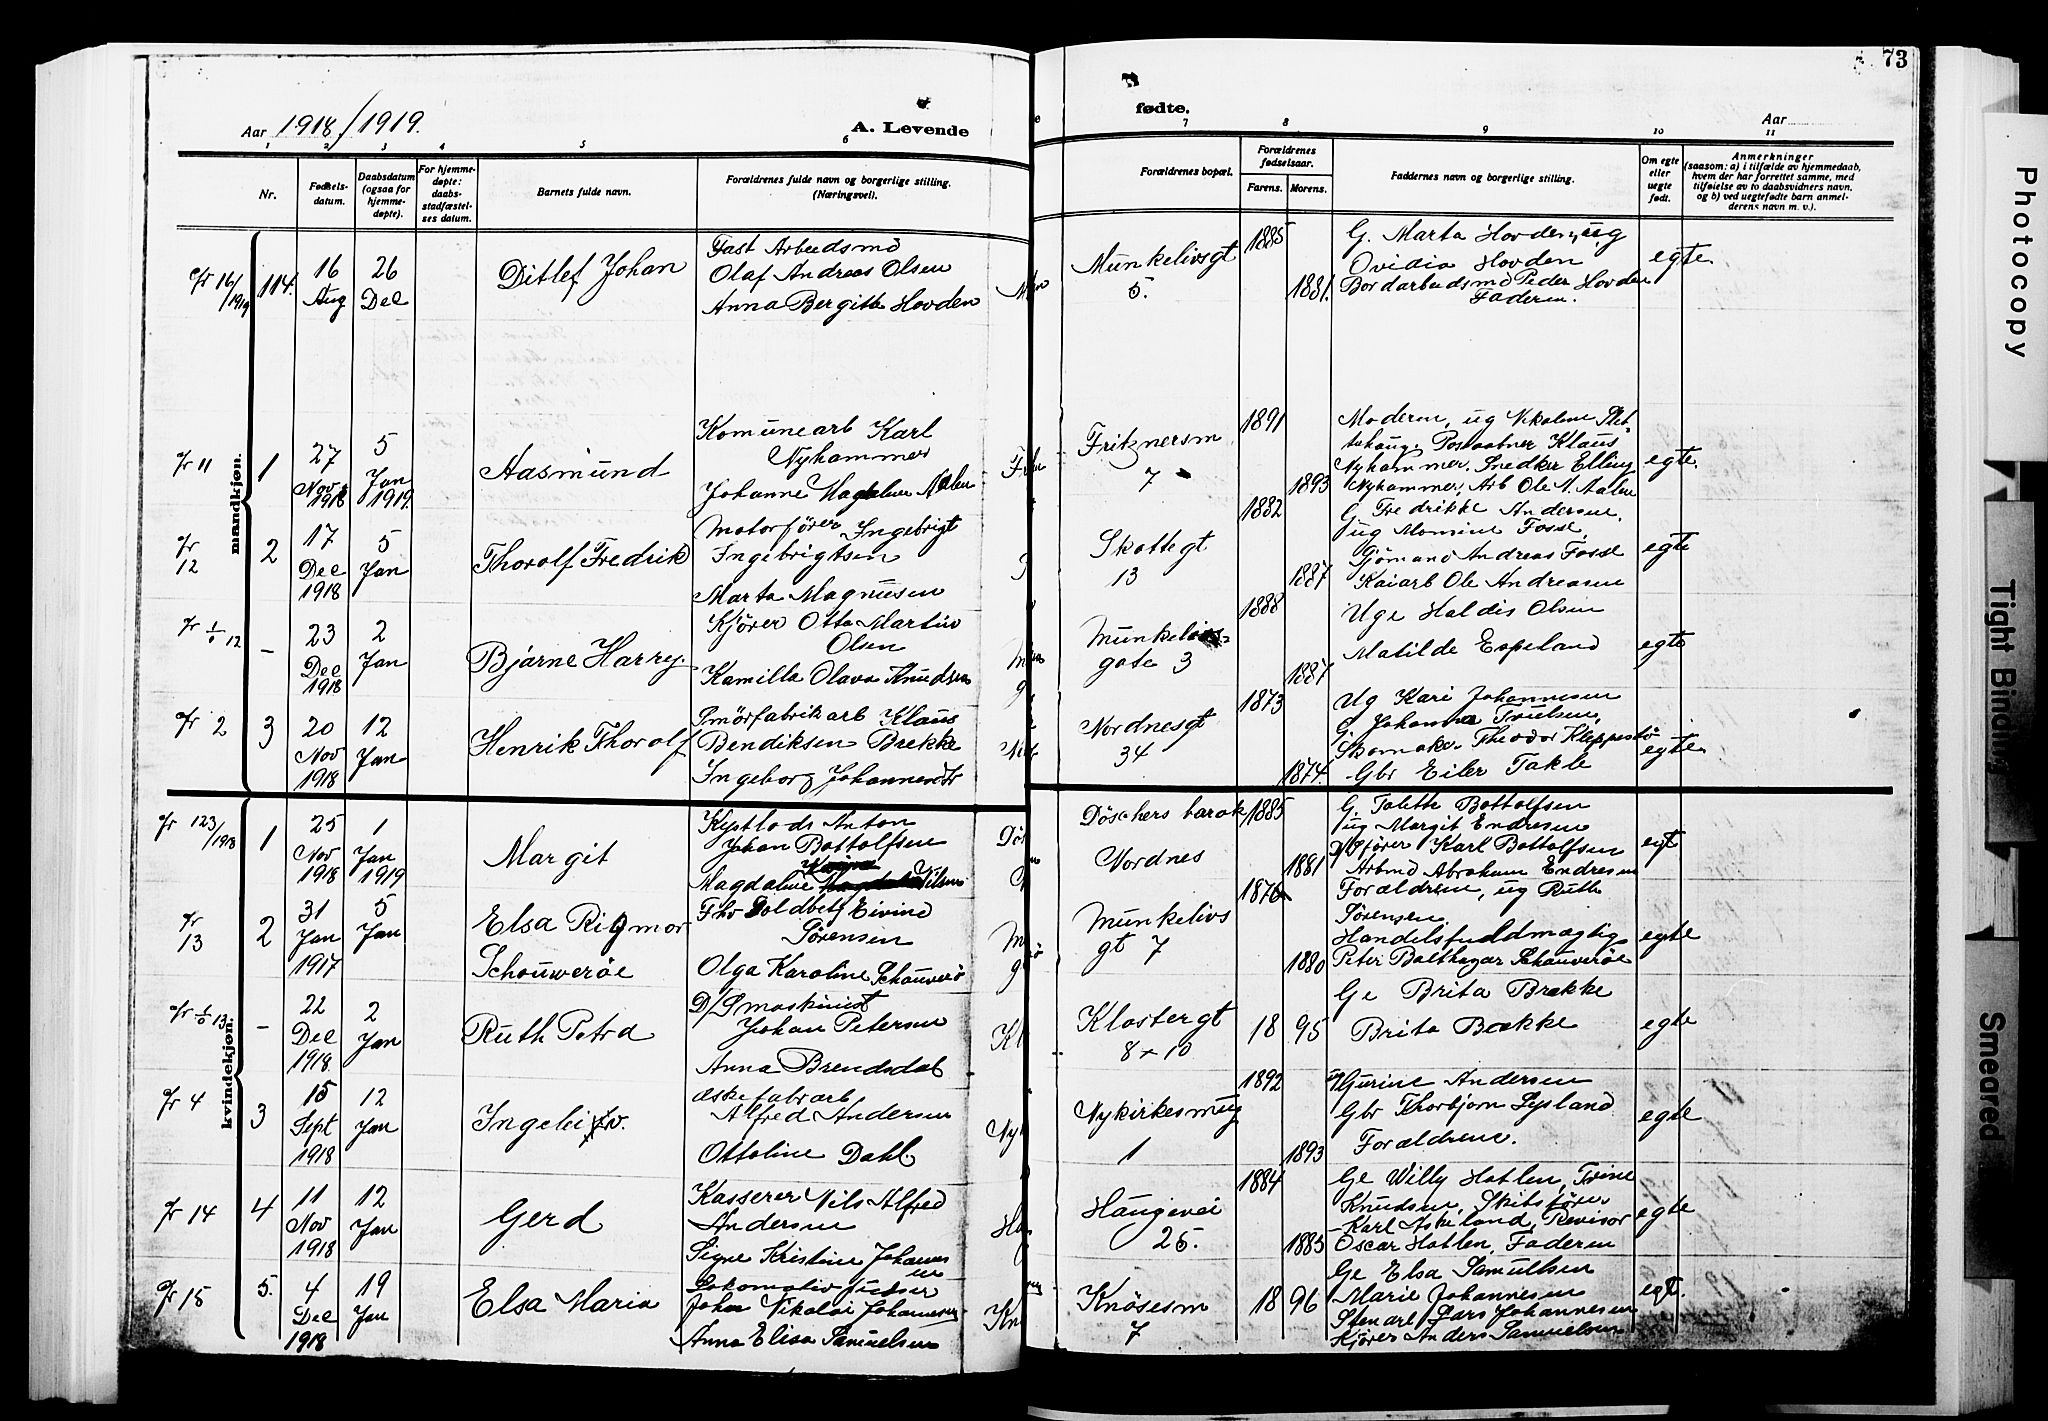 73
Aar 1918/1919.
A. Levende
fødte.
Aar
1 2 3 4 5 6 7 8 9 10 11
Nr.
Fødselsdatum.
Daabsdatum (ogsaa for hjemmedøpte).
For hjemmedøpte: daabsstadfæstelses datum.
Barnets fulde navn.
Forældrenes fulde navn og borgerlige stilling. (Næringsvei).
Forældrenes bopæl.
Forældrenes fødselsaar.
Farens. Morens.
Faddernes navn og borgerlige stilling.
Om egte eller uegte født.
Anmerkninger
(saasom: a) i tilfælde av hjemmedaab, hvem der har forrettet samme, med tilføielse av to daabsvidners navn, og b) ved uegtefødte barn anmelderens navn m. v.).
mandkjøn.
16/1919 114. 16 Aug 26 Dec
Ditlef Johan
Fast Arbeidsmd
Olaf Andreas Olsen
Anna Bergitte Hovden
Munkelivsgt
5.
1885
1881.
G. Marta Hovden, ug
Ovidia Hovden
Bordarbeidsmd Peder Hovden
Faderen.
egte
11 1 27 Nov 1918 5 Jan 1919.
Aasmund
Komunearb Karl
Nyhammer
Johanne Magdalene
Friknersm
7
1891
1893
Moderen, ug Nikoline Slet
tehaug. Postaabner Klaus
Nyhammer. Snedker Elling
Nyhammer, Arb Ole
egte.
12 2 17 Dec 1918 5 Jan
Thorolf Fredrik
Motorfører Ingebrigt
Ingebrigtsen
Marta Magnusen
Skottegt
13
1882
1887
G Fredrikke Andersen,
ug Momine Fosse,
Sjømand Andreas Fosse
Kaiarb Ole Andreasen
egte
12 - 23 Dec 1918 2 Jan
Bjarne Harry.
Kjører Otto Martin
Olsen
Kamilla Olava Knudsen
Munkelivs
gate 3
1888
1887
Uge Haldis Olsen
Matilde Espeland
egte
2 3 20 Nov 1918 12 Jan
Henrik Thorolf
Smørfabrik arb Klaus
Bendiksen Brekke
Ingeborg Johannesdtr
Nordnesgt
34
1873
1874.
Ug Kari Johannesen
G Johanna Truelsen,
Skomaker Theodor Kleppestø
Gbr Eiler Takle
egte
kvindekjøn.
123/1918 1 25 Nov 1918 1 Jan 1919
Margit
Kystlods Anton
Johan Bottolfsen
Magdaline Nilsen
Døschers barak
Nordnes
1885
1881
G. Talette Bottolfsen
ug Margit Endresen
Karl Bottolfsen
Arbmd Abraham Endresen
egt
13 2 31 Jan 1917 5 Jan
Elsa Rigmor
Schouwerøe
Eivind
Sørensen
Olga Karoline Schouwerø
Munkelivs
gt 7
1876
1880
Forældrene, ug Ruth
Sørensen
Handelsfuldmægtig
Peter Balthazar Schouwerøe
egte
13 - 22 Dec 1918. 2 Jan
Ruth Petra
D/Smaskinist
Johan Petersen
Anna Brendsdal
Klostergt
8 + 10
18 95
Ge Brita Brekke
Brita Brekke
egte
4 3 15 Sept 1918 12 Jan
æskefabrarb
Alfred Andersen
Ottoline Dahl.
Nykirkesmug
1
1892
1893
ug Gurine Andersen
Gbr Thorbjørn Lysland
Forældrene.
egte
14 4 11 Nov 1918 12 Jan
Gerd
Kasserer Nils Alfred
Andersen
Signe Kristine Johannes
en
Haugevei
25.
1884
1885
Ge Willy Hatlen, Trine
Knudsen, Skibsfører
Karl Askeland, Revisor
Oscar Hatlen, Faderen
egte
15 5. 4 Dec 1918 19 Jan
Elsa Maria
Lokomotiv pudser
Johan Nikolai Johannesen
Anna Elisa Samuelsen
Knøsesm
7
18 96
Ge Elsa Samuelsen
Marie Johannesen
Stenarb Lars Johannesen
Kjører Anders Samuelsen
egt.
Photocopy
Tight Binding
Smeared